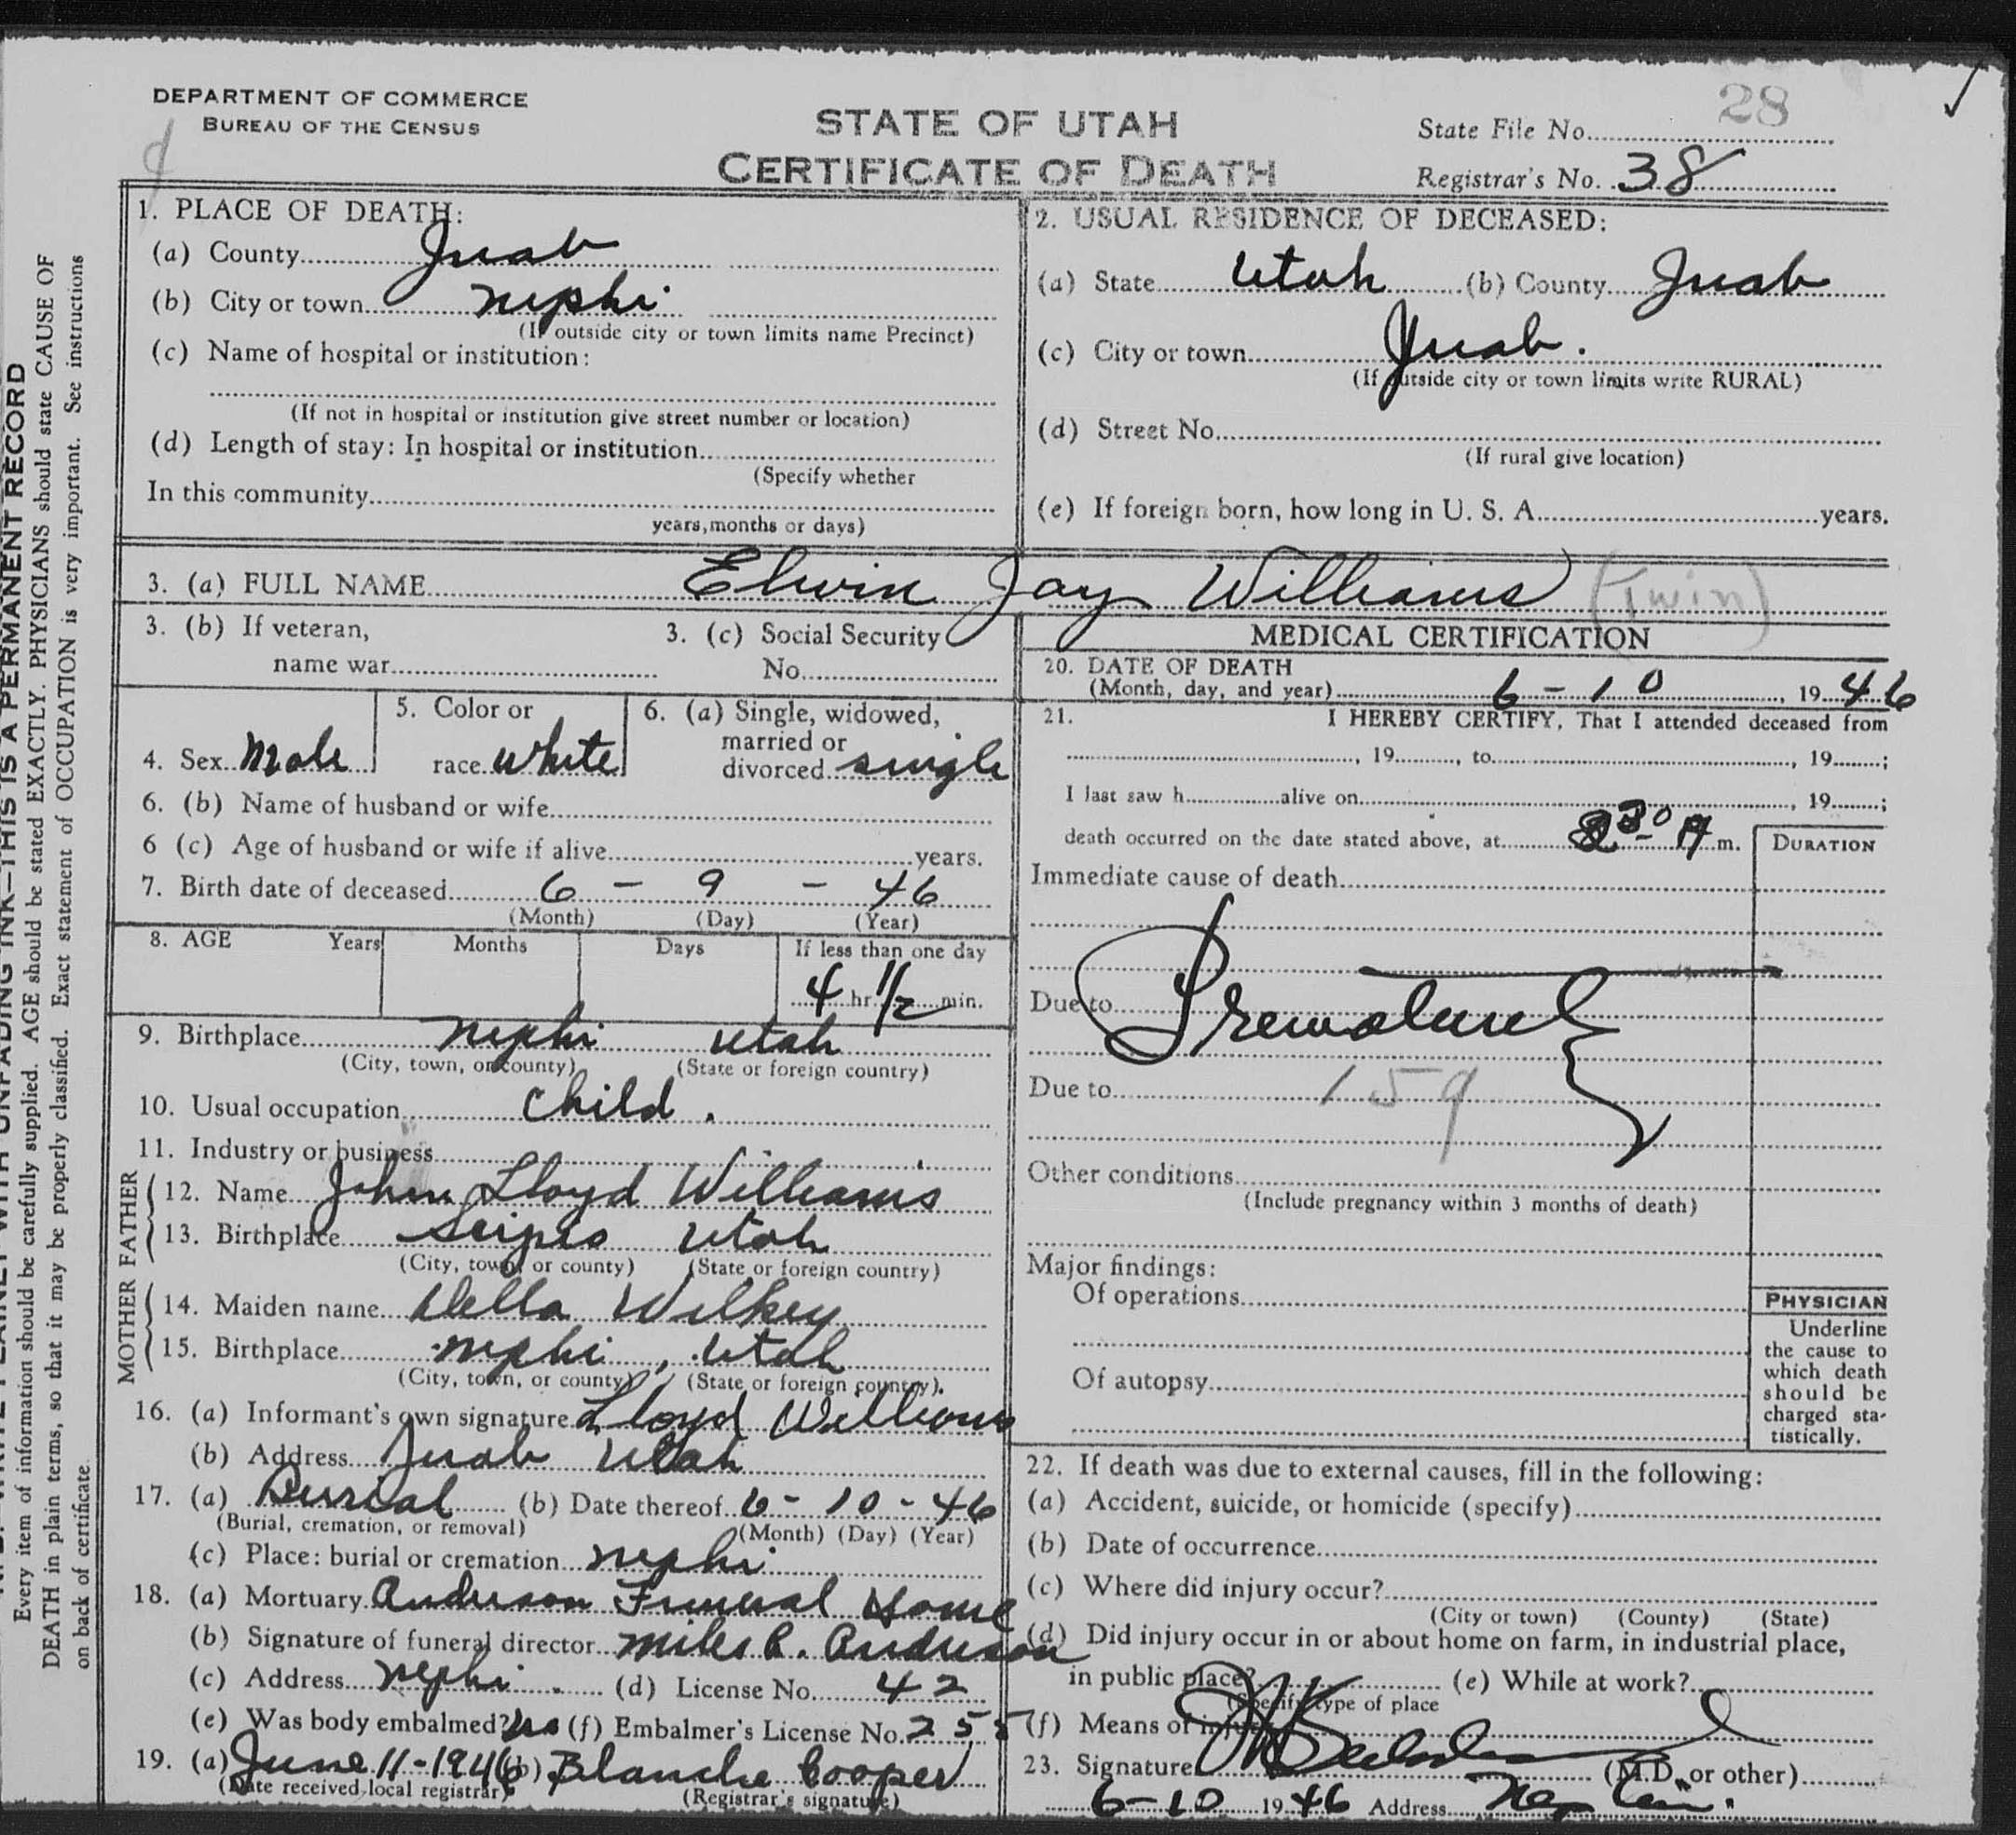 DEPARTMENT OF COMMERCE
BUREAU OF THE CENSUS
STATE OF UTAH
CERTIFICATE OF DEATH
State File No. 28
Registrar's No. 38
1. PLACE OF DEATH:
(a) County Juab
(b) City or town Nephi
(If outside city or town limits name Precinct)
(c) Name of hospital or institution:
(If not in hospital or institution give street number or location)
(d) Length of stay: In hospital or institution
(Specify whether
In this community
years, months or days)
2. USUAL RESIDENCE OF DECEASED:
(a) State Utah (b) County Juab
(c) City or town Juab.
(If outside city or town limits write RURAL)
(d) Street No.
(If rural give location)
(e) If foreign born, how long in U. S. A. years.
3. (a) FULL NAME Elwin Jay Williams (Twin)
3. (b) If veteran,
name war
3. (c) Social Security
No.
4. Sex Male
5. Color or
race White
6. (a) Single, widowed,
married or
divorced single
6. (b) Name of husband or wife
6 (c) Age of husband or wife if alive years.
7. Birth date of deceased 6 - 9 - 46
(Month) (Day) (Year)
8. AGE Years Months Days If less than one day
4 hr. 1/2 min.
9. Birthplace Nephi Utah
(City, town, or county) (State or foreign country)
10. Usual occupation Child.
11. Industry or business
FATHER
12. Name John Lloyd Williams
13. Birthplace Scipio Utah
(City, town, or county) (State or foreign country)
MOTHER
14. Maiden name Della Wilkey
15. Birthplace Nephi, Utah
(City, town, or county) (State or foreign country)
16. (a) Informant's own signature Lloyd Williams
(b) Address Juab Utah
17. (a) Burial (b) Date thereof 6-10-46
(Burial, cremation, or removal) (Month) (Day) (Year)
(c) Place: burial or cremation Nephi
18. (a) Mortuary Anderson Funeral Home
(b) Signature of funeral director Miles R. Anderson
(c) Address Nephi. (d) License No. 42
(e) Was body embalmed? no (f) Embalmer's License No. 255
19. (a) June 11-1946 (b) Blanche Cooper
(Date received local registrar) (Registrar's signature)
MEDICAL CERTIFICATION
20. DATE OF DEATH
(Month, day, and year) 6-10, 1946
21. I HEREBY CERTIFY, That I attended deceased from
, 19 , to , 19 ;
I last saw h alive on , 19 ;
death occurred on the date stated above, at 2 30 A m.
DURATION
Immediate cause of death
Due to Premature
Due to 159
Other conditions
(Include pregnancy within 3 months of death)
Major findings:
Of operations
Of autopsy
PHYSICIAN
Underline
the cause to
which death
should be
charged sta-
tistically.
22. If death was due to external causes, fill in the following:
(a) Accident, suicide, or homicide (specify)
(b) Date of occurrence
(c) Where did injury occur?
(City or town) (County) (State)
(d) Did injury occur in or about home on farm, in industrial place,
in public place? (e) While at work?
(Specify type of place
(f) Means of injury
23. Signature (M.D. or other)
6-10 1946 Address Nephi.
THIS IS A PERMANENT RECORD
Every item of information should be carefully supplied. AGE should be stated EXACTLY. PHYSICIANS should state CAUSE OF
DEATH in plain terms, so that it may be properly classified. Exact statement of OCCUPATION is very important. See instructions
on back of certificate.